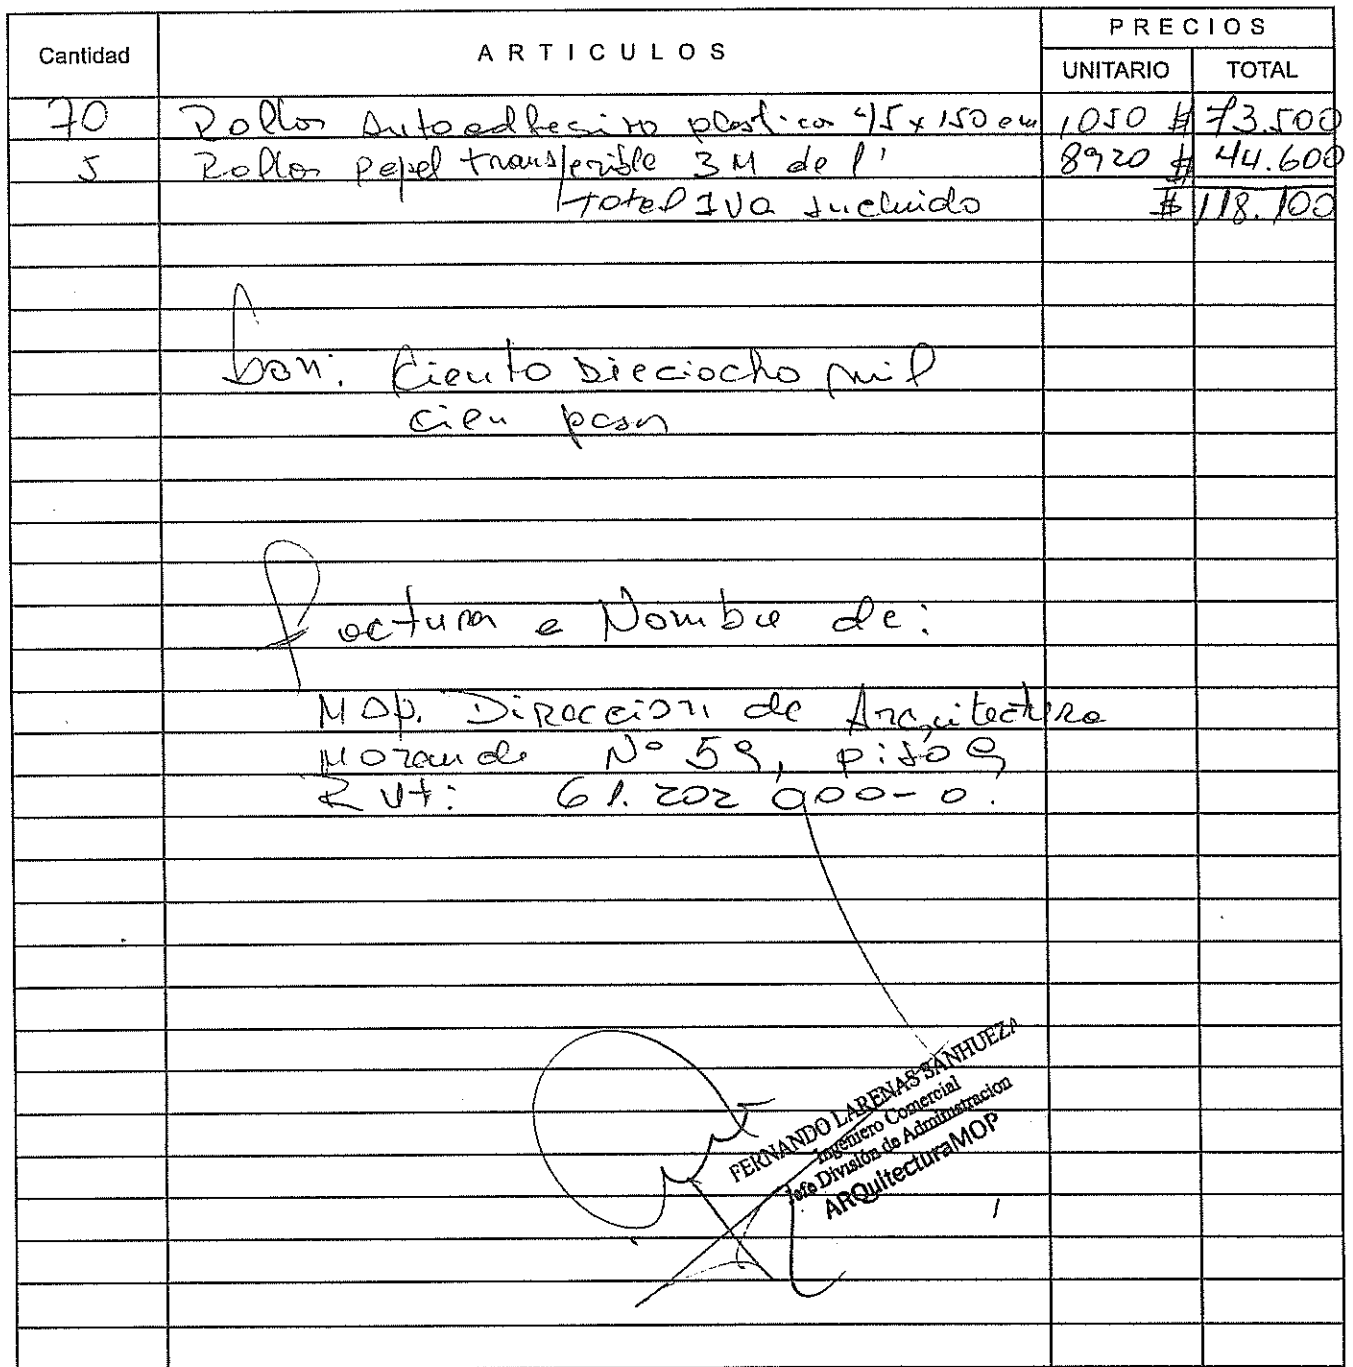 Cantidad ARTICULOS PRECIOS
UNITARIO TOTAL
70 Rollos Autoadhesivo plastico 45 x 150 cm 1050 $ 73.500
5 Rollos papel transferible 3M de 1" 8920 $ 44.600
Total IVA Incluido $ 118.100
Son: Ciento Dieciocho mil
cien pesos
Factura a Nombre de:
MOP. Direccion de Arquitectura
Morande Nº 59, piso 9
Rut: 61.202.000-0.
FERNANDO LARENAS SANHUEZA
Ingeniero Comercial
Jefe División de Administracion
ARQuitecturaMOP